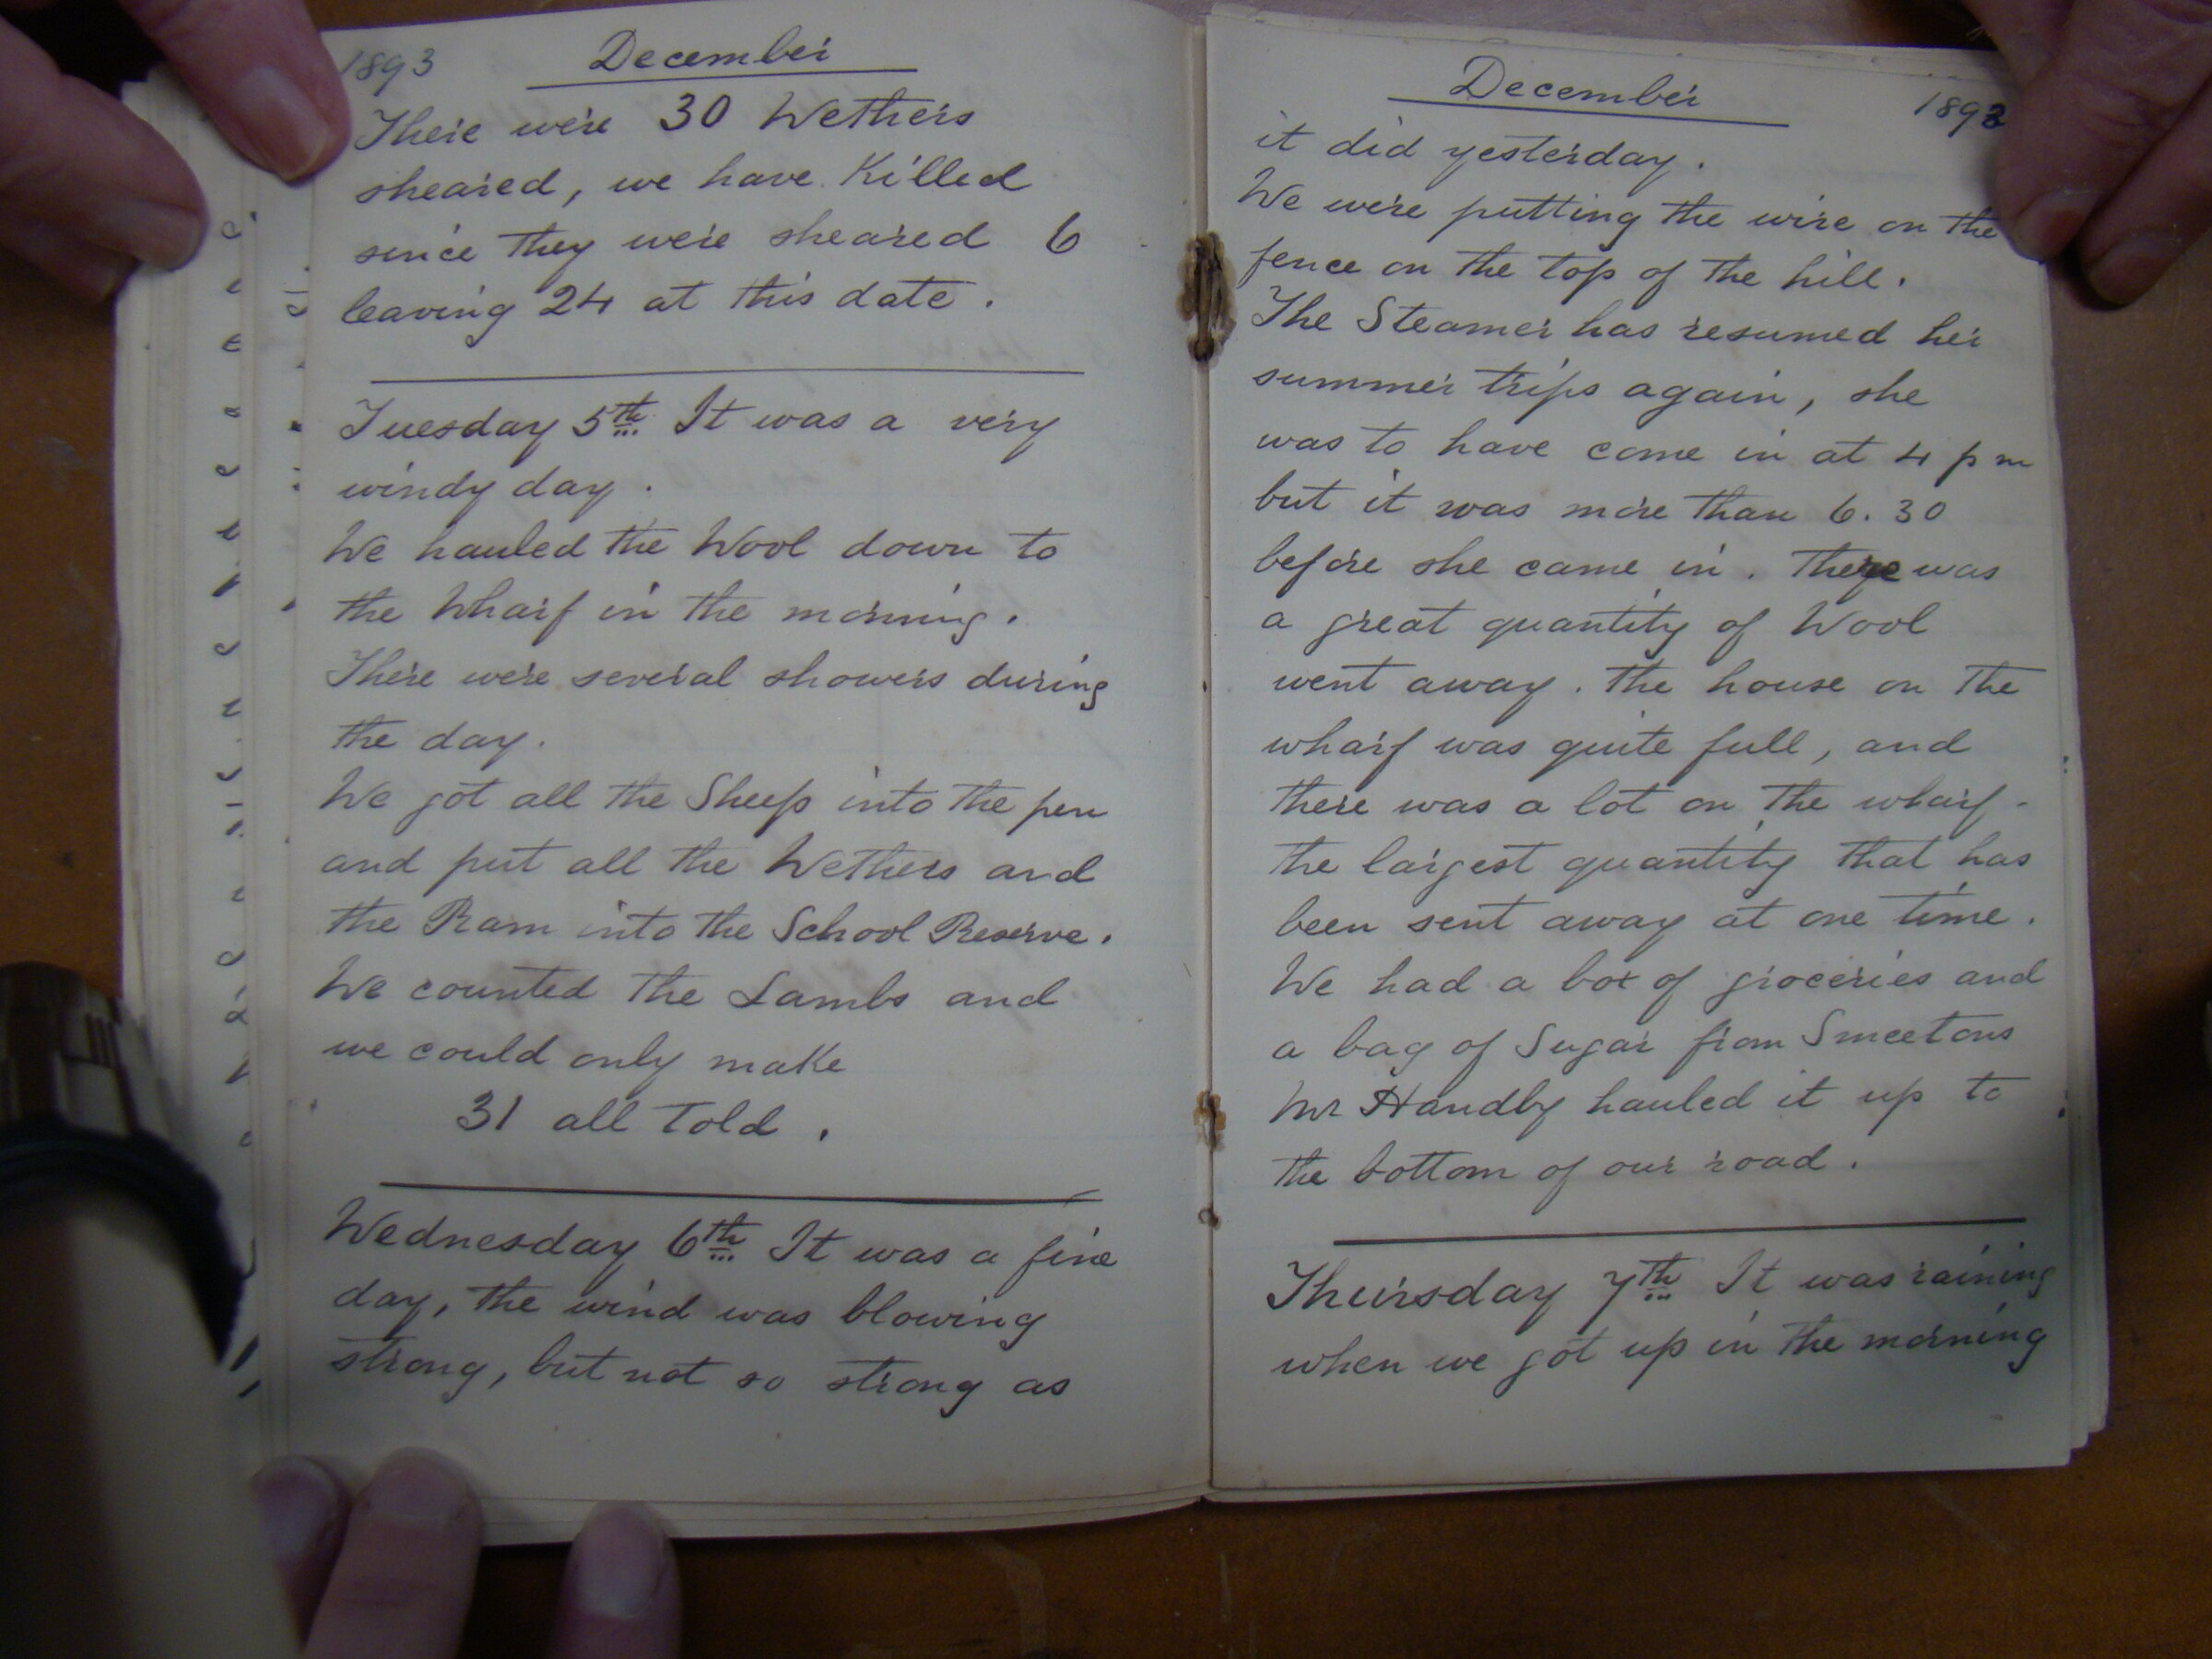 1893 December
There were 30 Wethers
sheared, we have Killed
since they were sheared 6
leaving 24 at this date.
Tuesday 5th It was a very
windy day.
We hauled the Wool down to
the Wharf in the morning.
There were several showers during
the day.
We got all the Sheep into the pen
and put all the Wethers and
the Ram into the School Reserve.
We counted the Lambs and
we could only make
31 all told.
Wednesday 6th It was a fine
day, the wind was blowing
strong, but not so strong as
December 1893
it did yesterday.
We were putting the wire on the
fence on the top of the hill.
The Steamer has resumed her
summer trips again, she
was to have come in at 4 pm
but it was more than 6.30
before she came in. There was
a great quantity of Wool
went away. The house on the
wharf was quite full, and
there was a lot on the wharf -
the largest quantity that has
been sent away at one time.
We had a box of groceries and
a bag of Sugar from Smeetons
Mr Handby hauled it up to
the bottom of our road.
Thursday 7th It was raining
when we got up in the morning